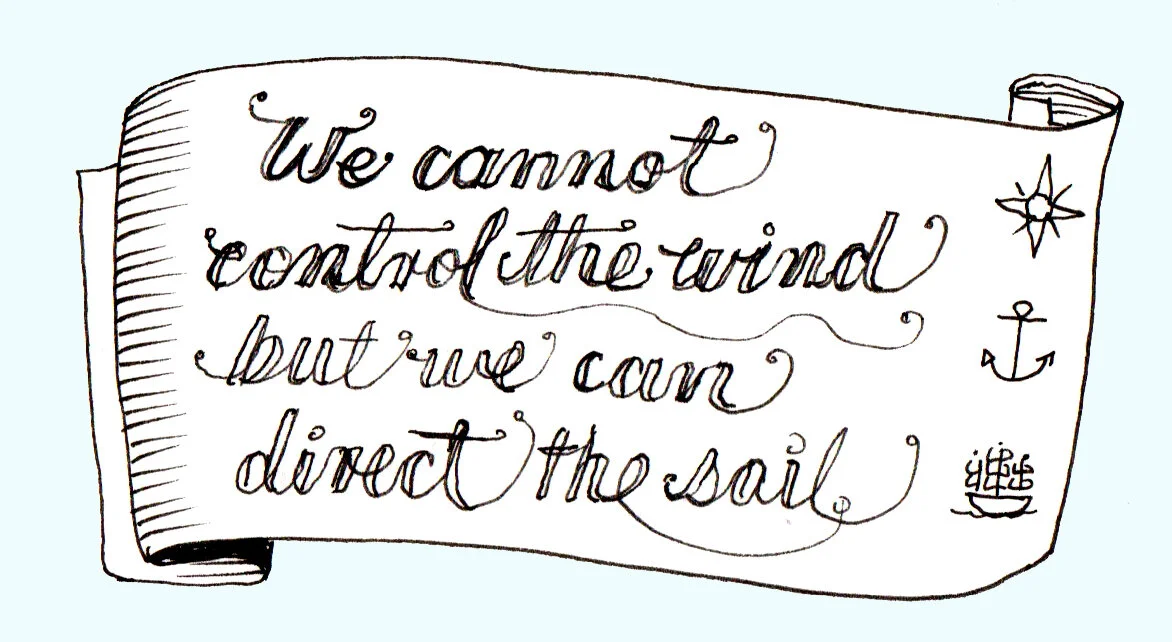 We cannot
control the wind
but we can
direct the sail